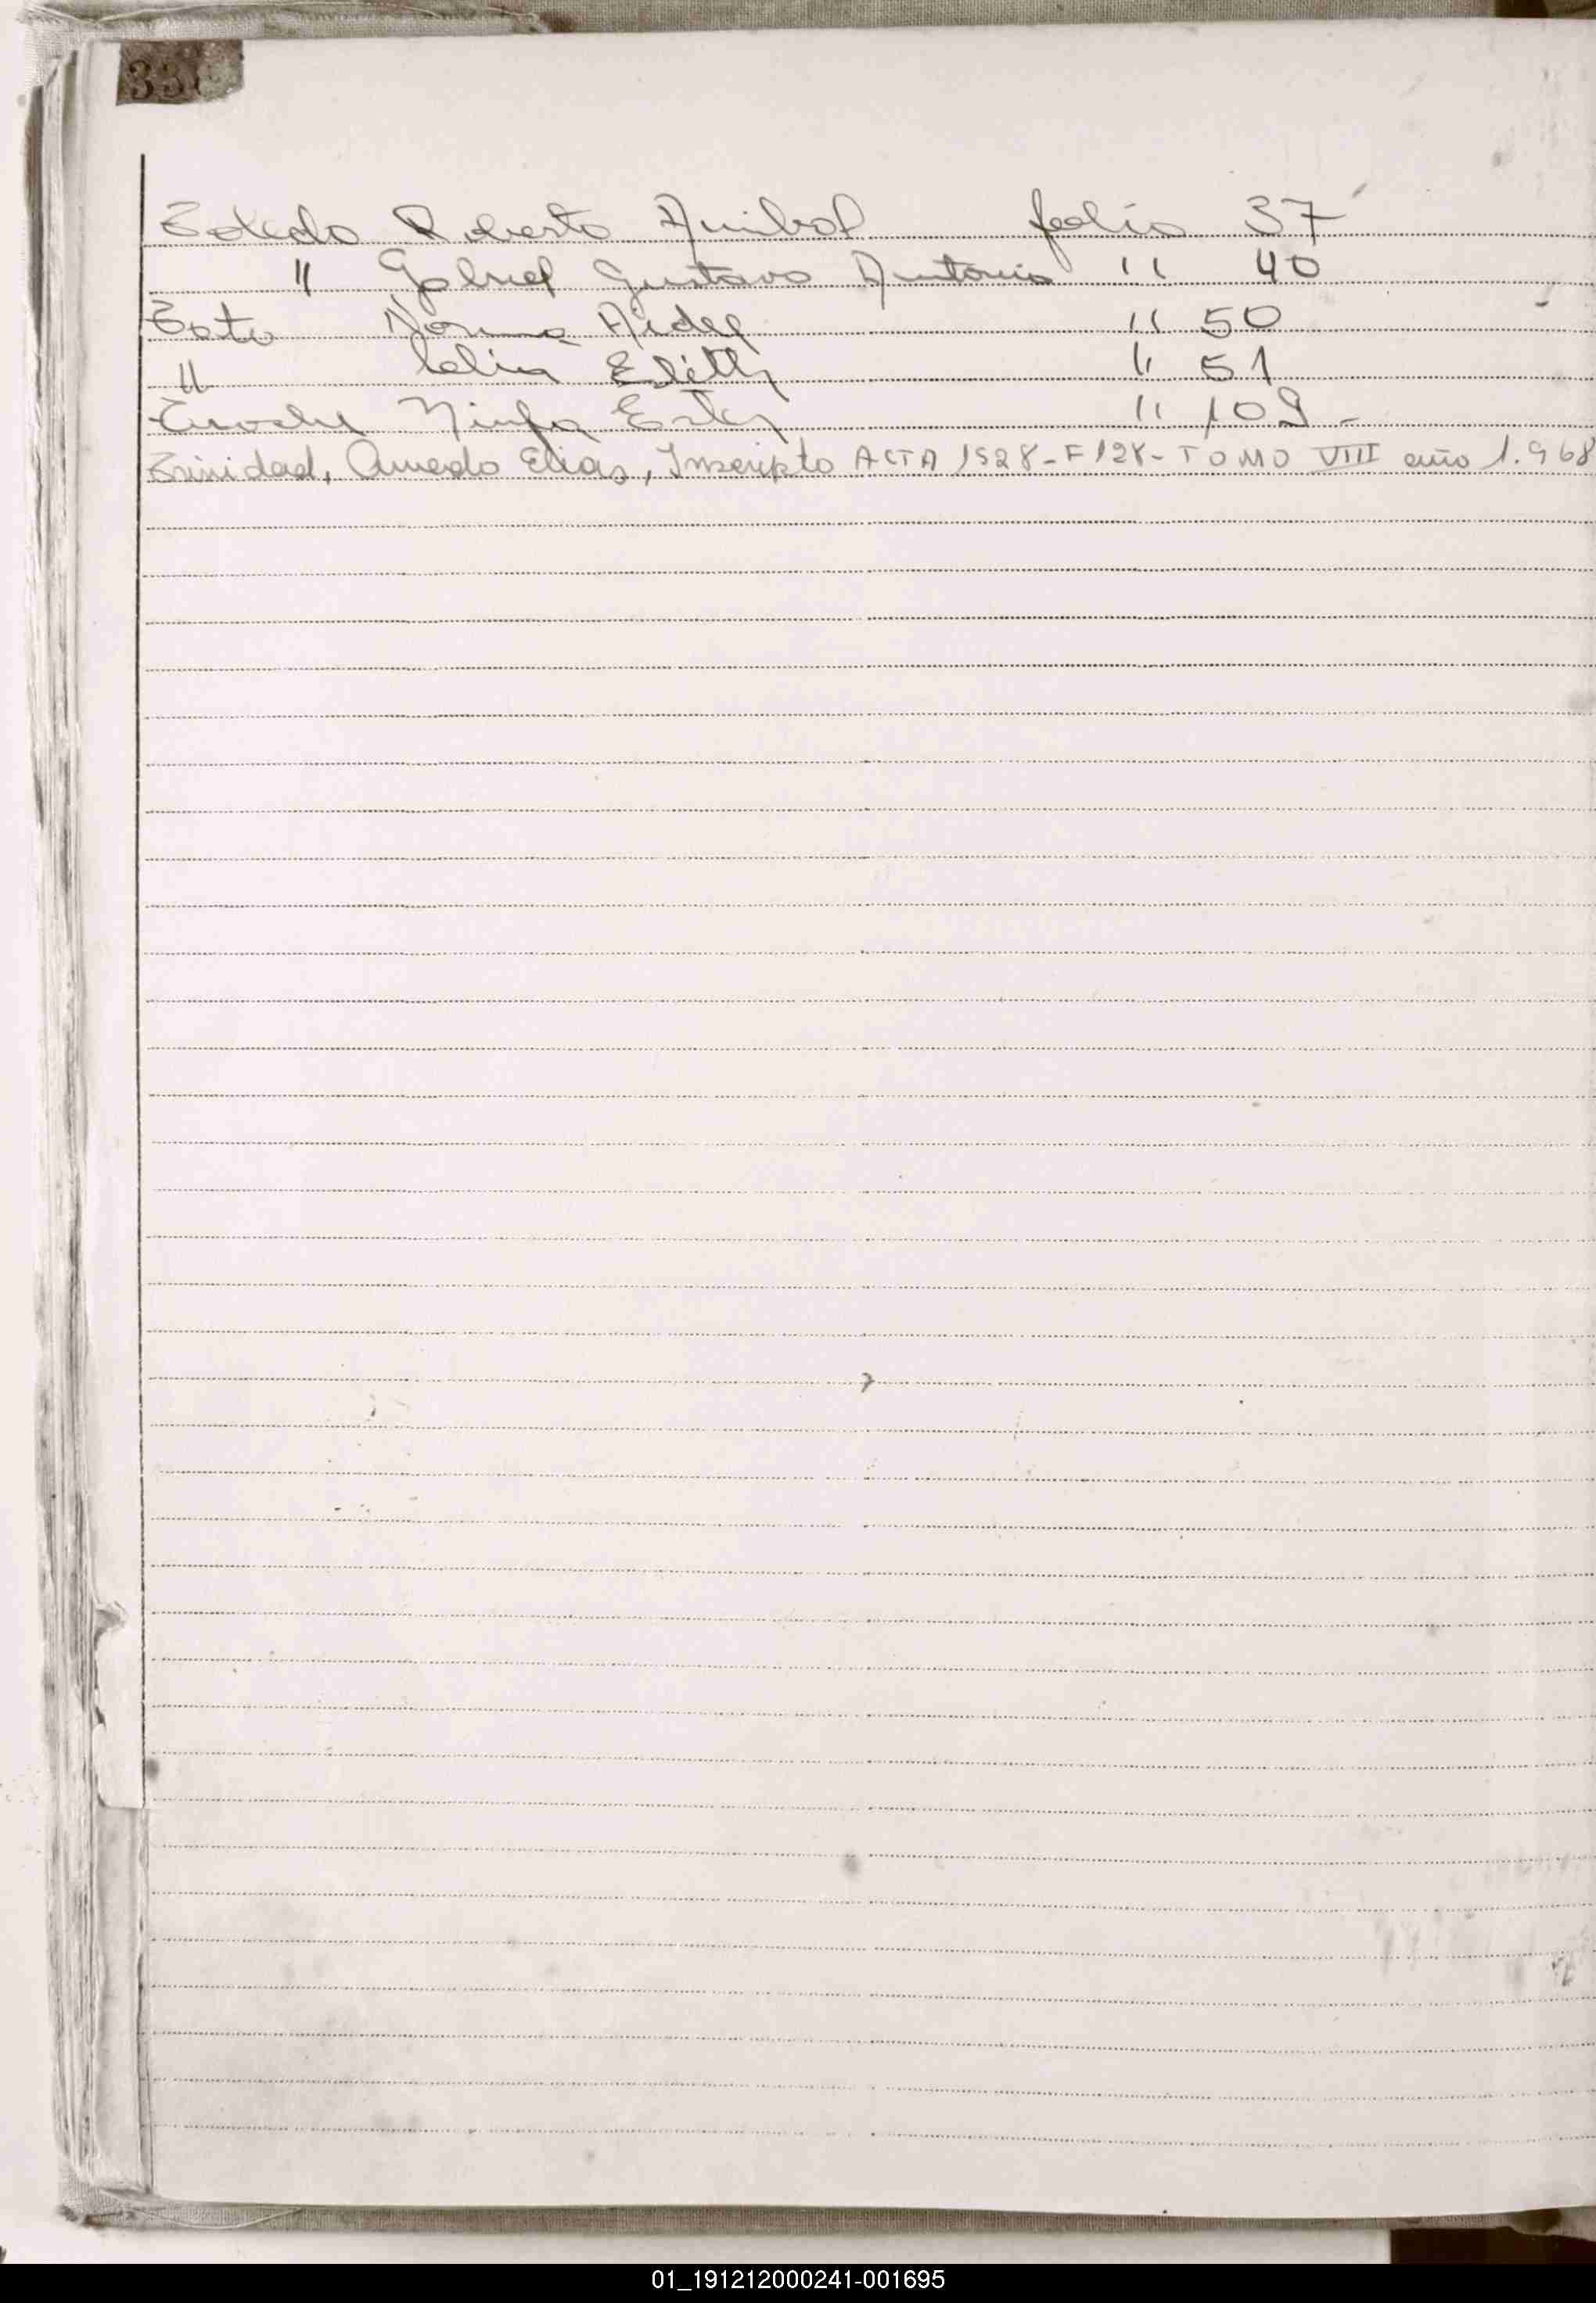 Toledo Roberto Anibal folio 37
" Gabriel Gustavo Antonio " 40
Norma Aidee " 50
" Celia Edith " 51
Ninfa Ester " 109 -
Trinidad, Amedo Elias, Inscripto ACTA 1528-F128-TOMO VIII año 1.968
01_191212000241-001695